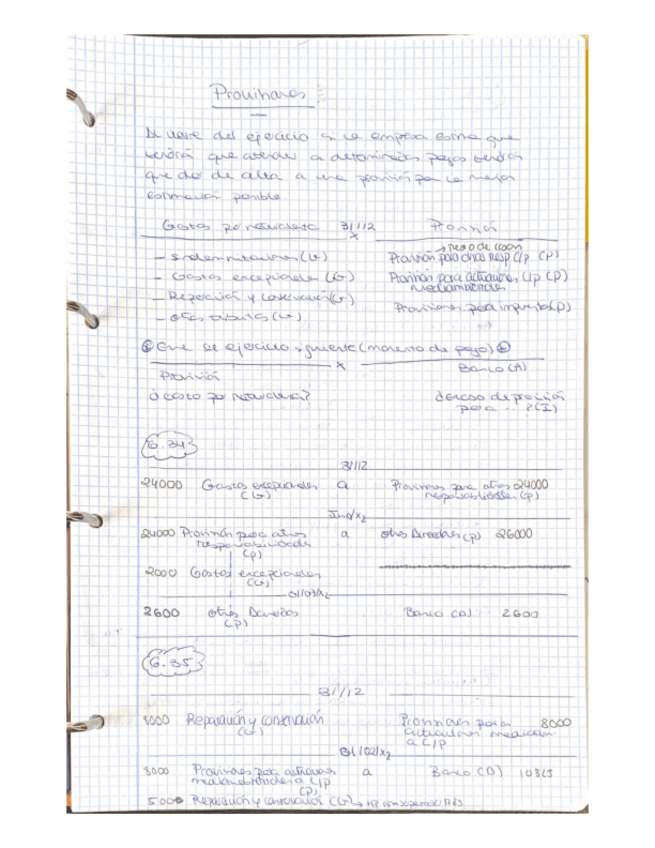 Provisiones
Al cierre del ejercicio si la empresa estima que
tendrá que atender a determinados pagos tendrá
que dar de alta a una provisión por la mejor
estimación posible.
Gastos por naturaleza 31/12 Provisión
x
- Indemnizaciones (G) Provisión para otras resp c/p (P)
- Gastos excepcionales (G) Provisión para actuaciones c/p (P)
medioambientales
- Reparación y conservación (G)
- otros tributos (G) Provisiones para impuestos (P)
en el ejercicio siguiente (momento de pago)
x Banco (A)
Provisión
¿Gasto por naturaleza? ¿Exceso de provisión
para ...? (I)
6.34
31/12
24000 Gastos excepcionales a Provisiones para otras 24000
(G) responsabilidades (P)
Jun/x2
24000 Provisión para otras a otros Acreedores (P) 26000
responsabilidades
(P)
2000 Gastos excepcionales
(G)
01/07/x2
2600 otros Acreedores Banco (A) 2600
(P)
6.35
31/12
8000 Reparación y conservación Provisiones para 8000
(G) actuaciones medioam
a c/p
01/02/x2
8000 Provisiones para actuaciones a Banco (A)
medioambientales a c/p
(P)
5000 Reparación y conservación (G)